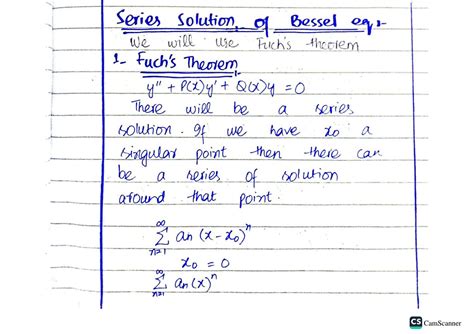 Series Solution of Bessel eq:-
We will use Fuch's theorem
1- Fuch's Theorem:-
y'' + P(x)y' + Q(x)y = 0
There will be a series
solution. If we have x₀ a
singular point then there can
be a series of solution
around that point.
∞
Σ an (x-x₀)ⁿ
n=1
x₀ = 0
∞
Σ an(x)ⁿ
n=1
CS CamScanner